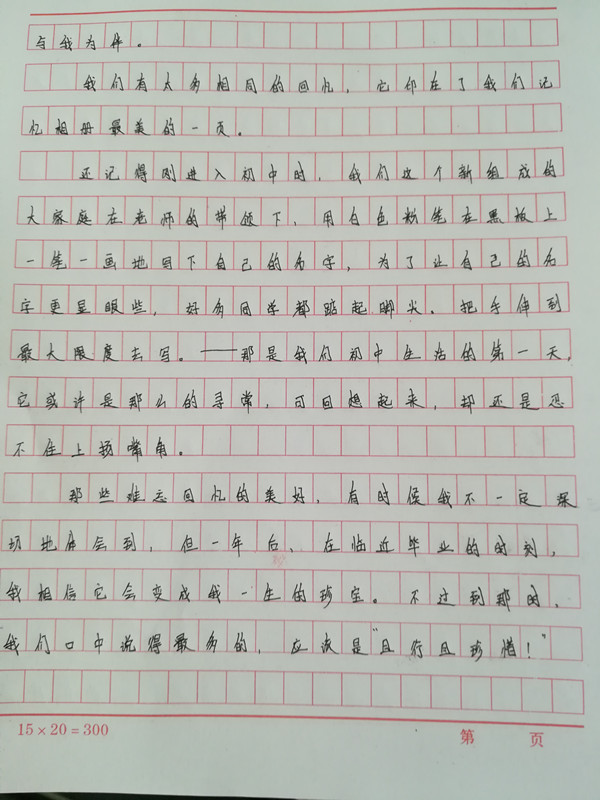 与我为伴。
我们有太多相同的回忆，它印在了我们记
忆相册最美的一页。
还记得刚进入初中时，我们这个新组成的
大家庭在老师的带领下，用白色粉笔在黑板上
一笔一画地写下自己的名字，为了让自己的名
字更显眼些，好多同学都踮起脚尖、把手伸到
最大限度去写。——那是我们初中生活的第一天，
它或许是那么的寻常，可回想起来，却还是忍
不住上扬嘴角。
那些难忘回忆的美好，有时候我不一定深
切地体会到，但一年后、在临近毕业的时刻，
我相信它会变成我一生的珍宝。不过到那时，
我们口中说得最多的，应该是"且行且珍惜！"
15×20=300
第 页